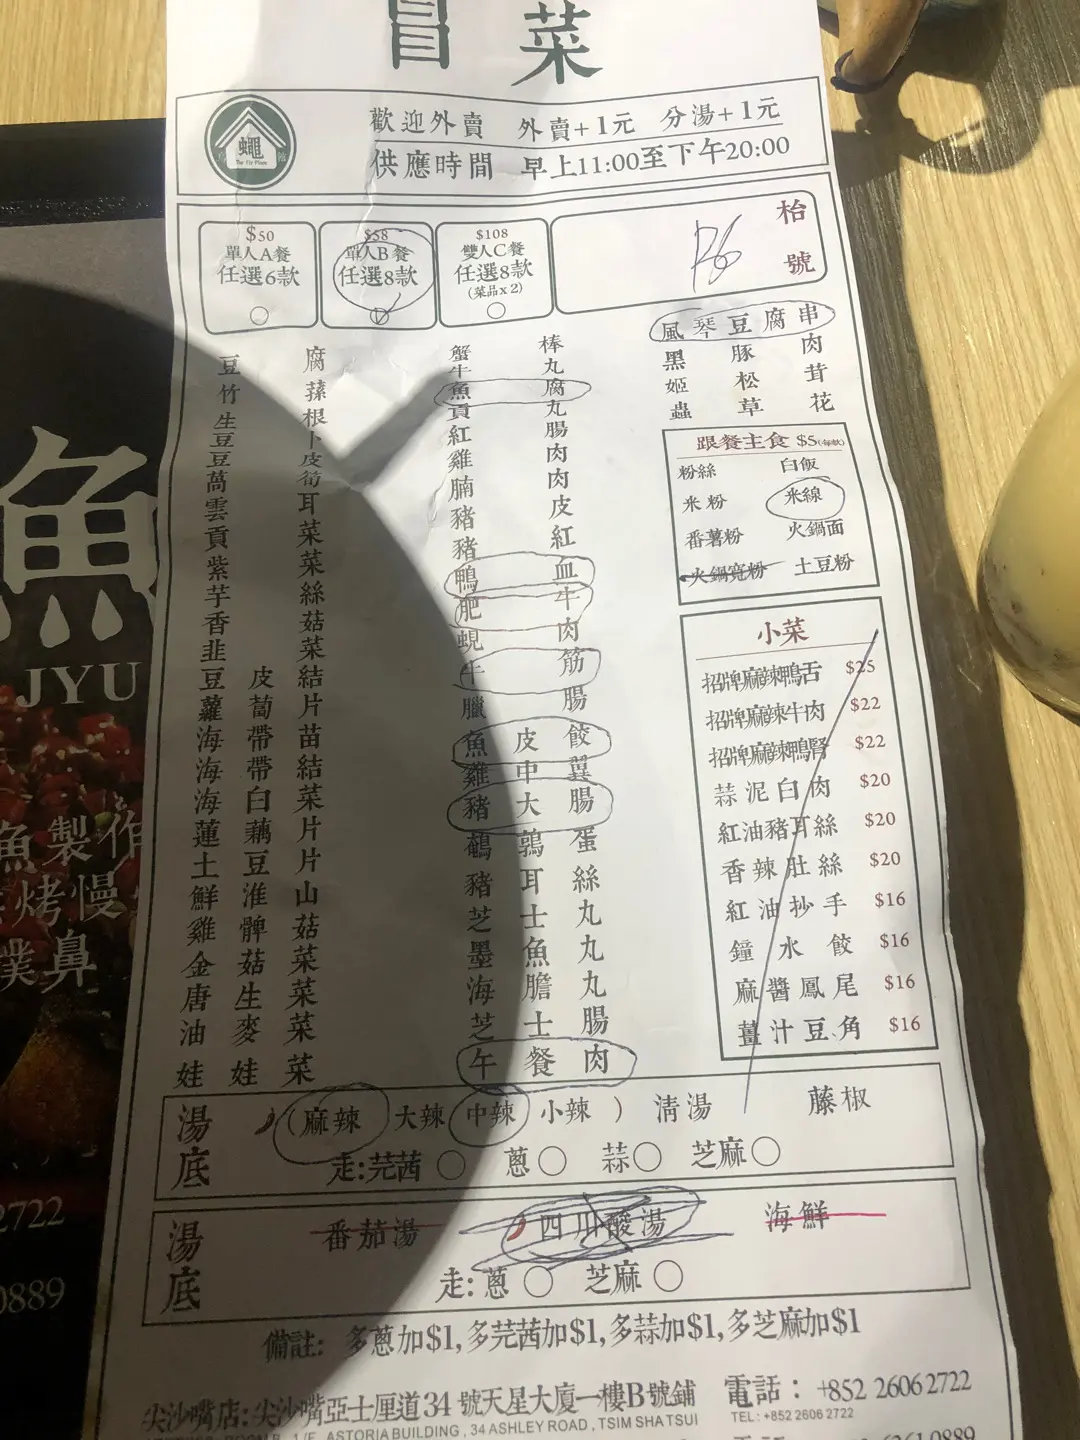 冒菜
蠅
The Fly Place
歡迎外賣 外賣+1元 分湯+1元
供應時間 早上11:00至下午20:00
$50
單人A餐
任選6款
$58
單人B餐
任選8款
$108
雙人C餐
任選8款
(菜品x2)
枱號
P6
豆腐
竹蓀
生根
豆卜
豆皮
萵筍
雲耳
貢菜
紫菜
芋絲
香菇
韭菜
豆皮結
蘿蔔片
海帶苗
海帶結
海白菜
蓮藕片
土豆片
鮮淮山
雞髀菇
金菇菜
唐生菜
油麥菜
娃娃菜
蟹棒
牛丸
魚腐
貢丸
紅腸
雞肉
腩肉
豬皮
豬紅
鴨血
肥牛
蜆肉
牛筋
臘腸
魚皮餃
雞中翼
豬大腸
鵪鶉蛋
豬耳絲
芝士丸
墨魚丸
海膽丸
芝士腸
午餐肉
風琴豆腐串
黑豚肉
姬松茸
蟲草花
跟餐主食 $5(每款)
粉絲 白飯
米粉 米線
番薯粉 火鍋面
火鍋寬粉 土豆粉
小菜
招牌麻辣鴨舌 $25
招牌麻辣牛肉 $22
招牌麻辣鴨腎 $22
蒜泥白肉 $20
紅油豬耳絲 $20
香辣肚絲 $20
紅油抄手 $16
鐘水餃 $16
麻醬鳳尾 $16
薑汁豆角 $16
湯底 (麻辣 大辣 中辣 小辣) 清湯 藤椒
走:芫茜 蔥 蒜 芝麻
湯底 番茄湯 四川酸湯 海鮮
走:蔥 芝麻
備註: 多蔥加$1,多芫茜加$1,多蒜加$1,多芝麻加$1
尖沙嘴店:尖沙嘴亞士厘道34號天星大廈一樓B號鋪 電話：+852 2606 2722
1/F, ASTORIA BUILDING, 34 ASHLEY ROAD, TSIM SHA TSUI TEL: +852 2606 2722
魚
JYU
魚製作
烤慢
撲鼻
2722
0889